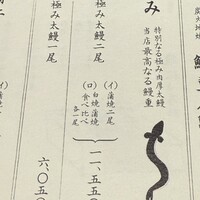 み
特別なる極み肉厚太鰻
当店最高なる鰻重
極み太鰻二尾
(イ)蒲焼二尾
(ロ)白焼蒲焼
食べ比べ
各一尾
一一、五五
極み太鰻一尾
六、〇五〇